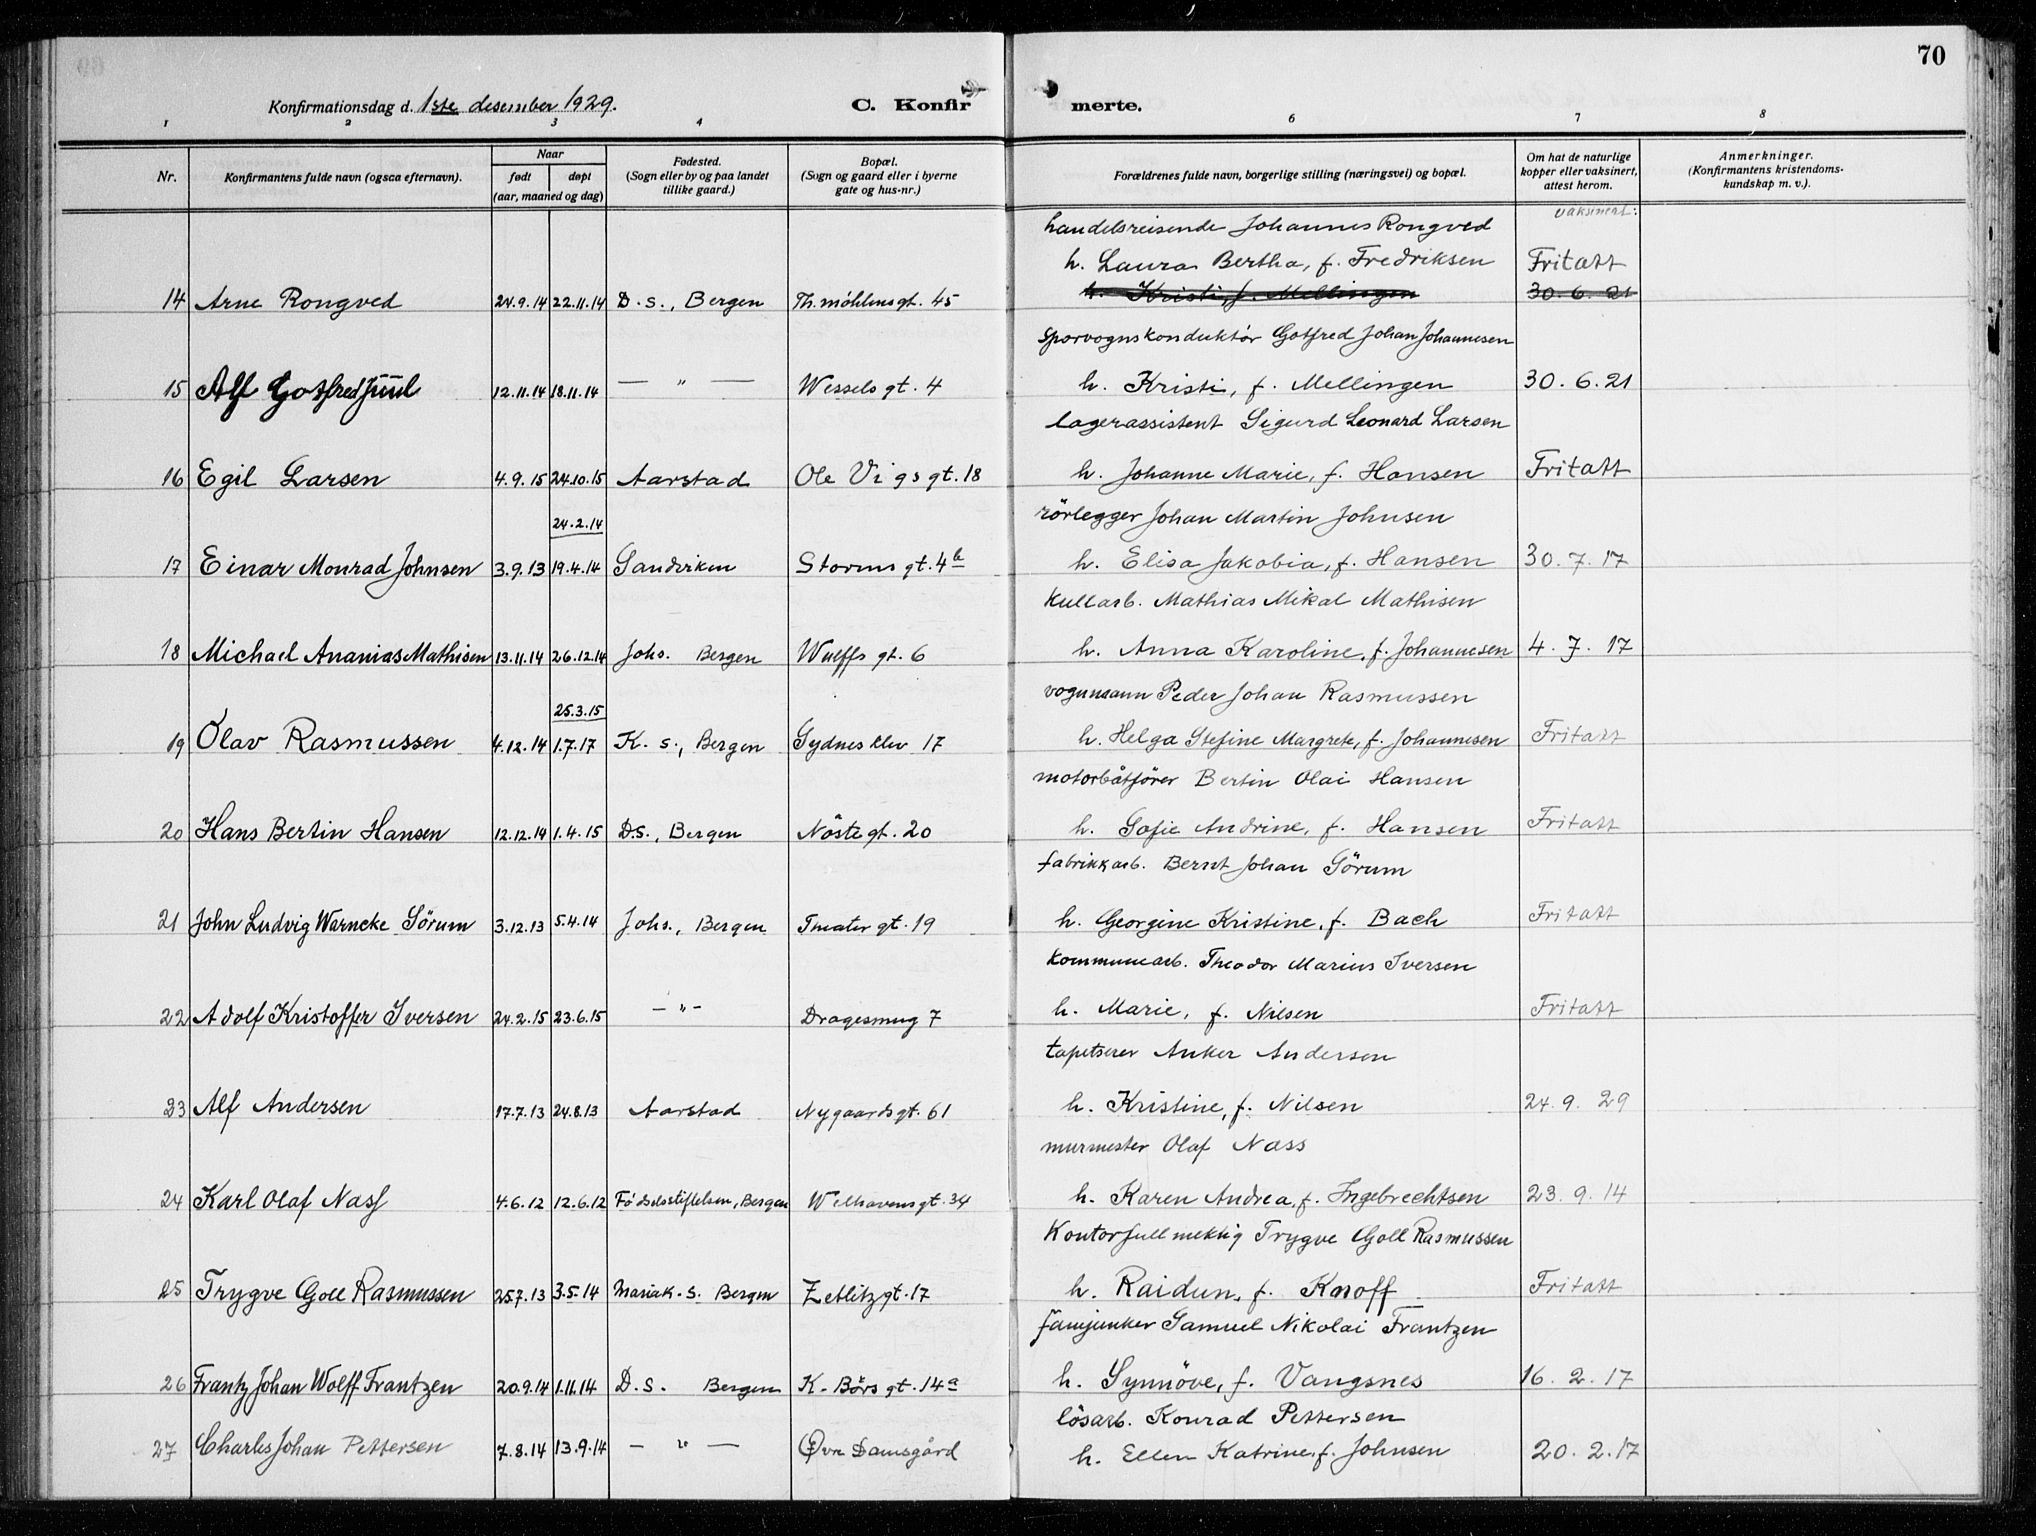 70
Konfirmationsdag d. 1ste desember 1929. C. Konfir merte.
1 2 3 4 6 7 8
Nr. Konfirmantens fulde navn (ogsaa efternavn). Naar født døpt (aar, maaned og dag) Fødested. (Sogn eller by og paa landet tillike gaard.) Bopæl. (Sogn og gaard eller i byerne gate og hus-nr.) Forældrenes fulde navn, borgerlige stilling (næringsvei) og bopæl. Om hat de naturlige kopper eller vaksinert, attest herom. Anmerkninger. (Konfirmantens kristendoms-kundskap m. v.).
vaksinert:
handelsreisende Johannes Rongved
h. Laura Bertha, f. Fredriksen Fritatt
14 Arne Rongved 24.9.14 22.11.14 D.s., Bergen Th. möhlensgt. 45 h. Kristi, f. Mellingen 30.6.21
sporvognskonduktör Gotfred Johan Johannesen
15 Alf Gotfred Juul 12.11.14 18.11.14 — " — Wessels gt. 4 h. Kristi, f. Mellingen 30.6.21
lagerassistent Sigurd Leonard Larsen
16 Egil Larsen 4.9.15 24.10.15 Aarstad Ole Vigs gt. 18 h. Johanne Marie, f. Hansen Fritatt
24.2.14 rörlegger Johan Martin Johnsen
17 Einar Monrad Johnsen 3.9.13 19.4.14 Sandviken Storms gt. 4b h. Elisa Jakobia, f. Hansen 30.7.17
kullarb. Mathias Mikal Mathisen
18 Michael Ananias Mathisen 13.11.14 26.12.14 Johs. Bergen Wulffs gt. 6 h. Anna Karoline, f. Johannesen 4.7.17
25.3.15 vognmann Peder Johan Rasmussen
19 Olav Rasmussen 4.12.14 1.7.17 K.s., Bergen Sydneskleiv 17 h. Helga Stefine Margrete, f. Johannesen Fritatt
motorbåtförer Bertin Olai Hansen
20 Hans Bertin Hansen 12.12.14 1.4.15 D.s., Bergen Nöstegt. 20 h. Sofie Andrine, f. Hansen Fritatt
fabrikkarb. Bernt Johan Sörum
21 John Ludvig Warncke Sörum 3.12.13 5.4.14 Johs., Bergen Theatergt. 19 h. Georgine Kristine, f. Bach Fritatt
kommunearb. Theodor Marius Iversen
22 Adolf Kristoffer Iversen 24.2.15 23.6.15 — " — Dragesmug 7 h. Marie, f. Nilsen Fritatt
tapetserer Anker Andersen
23 Alf Andersen 17.7.13 24.8.13 Aarstad Nygaardsgt. 61 h. Kristine, f. Nilsen 24.9.29
murmester Olaf Nass
24 Karl Olaf Nass 4.6.12 12.6.12 Födselsstiftelsen, Bergen Welhavensgt. 34 h. Karen Andrea, f. Ingebrechtsen 23.9.14
Kontorfullmektig Trygve Goll Rasmussen
25 Trygve Goll Rasmussen 25.7.13 3.5.14 Mariak.s. Bergen Zetlitzgt. 17 h. Raidun, f. Knoff Fritatt
fanejunker Samuel Nikolai Frantzen
26 Frantz Johan Wolff Frantzen 20.9.14 1.11.14 D.s. Bergen K. Börs gt. 14a h. Synnöve, f. Vangsnes 16.2.17
lösarb. Konrad Pettersen
27 Charles Johan Pettersen 7.8.14 13.9.14 — " — Øvre Damsgård h. Ellen Katrine, f. Johnsen 20.2.17